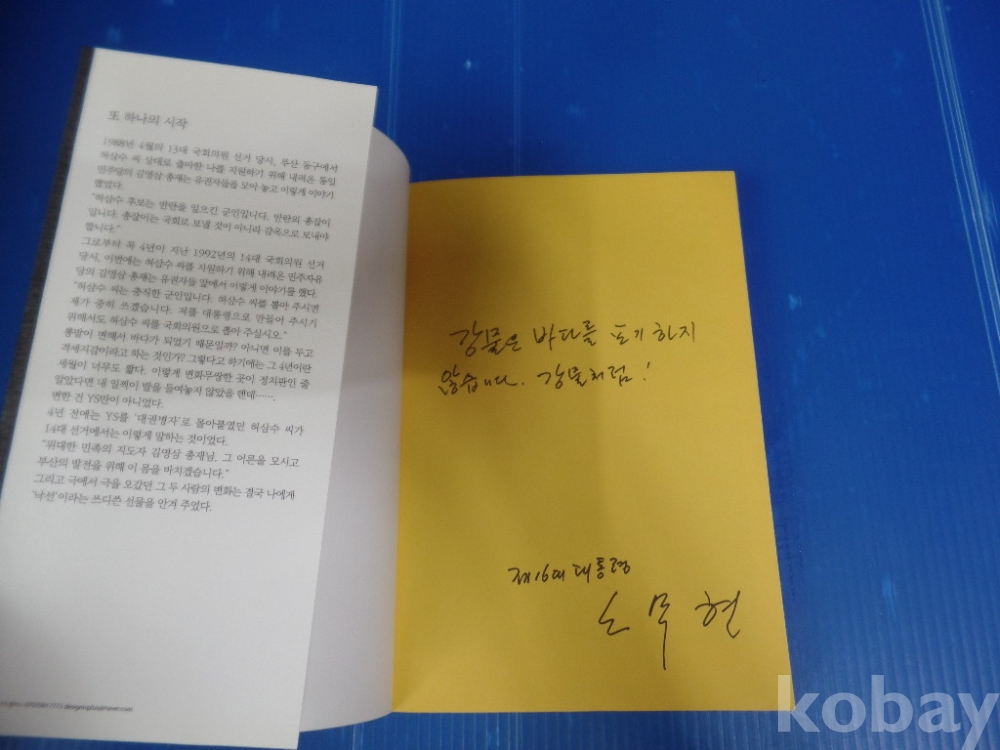 또 하나의 시작
1988년 4월의 13대 국회의원 선거 당시, 부산 동구에서
허삼수 씨 상대로 출마한 나를 지원하기 위해 내려온 통일
민주당의 김영삼 총재는 유권자들을 모아 놓고 이렇게 이야기
했었다.
"허삼수 후보는 반란을 일으킨 군인입니다. 반란의 총잡이
입니다. 총잡이는 국회로 보낼 것이 아니라 감옥으로 보내야
합니다."
그로부터 꼭 4년이 지난 1992년의 14대 국회의원 선거
당시, 이번에는 허삼수 씨를 지원하기 위해 내려온 민주자유
당의 김영삼 총재는 유권자들 앞에서 이렇게 이야기를 했다.
"허삼수 씨는 충직한 군인입니다. 허삼수 씨를 뽑아 주시면
제가 중히 쓰겠습니다. 저를 대통령으로 만들어 주시기
위해서도 허삼수 씨를 국회의원으로 뽑아 주십시오."
뽕밭이 변해서 바다가 되었기 때문일까? 아니면 이를 두고
격세지감이라고 하는 것인가? 그렇다고 하기에는 그 4년이란
세월이 너무도 짧다. 이렇게 변화무쌍한 곳이 정치판인 줄
알았다면 내 일찍이 발을 들여놓지 않았을 텐데…….
변한 건 YS만이 아니었다.
4년 전에는 YS를 '대권병자'로 몰아붙였던 허삼수 씨가
14대 선거에서는 이렇게 말하는 것이었다.
"위대한 민족의 지도자 김영삼 총재님, 그 어른을 모시고
부산의 발전을 위해 이 몸을 바치겠습니다."
그리고 극에서 극을 오갔던 그 두 사람의 변화는 결국 나에게
'낙선'이라는 쓰디쓴 선물을 안겨 주었다.
강물은 바다를 포기하지
않습니다. 강물처럼!
제16대 대통령
노무현
kobay